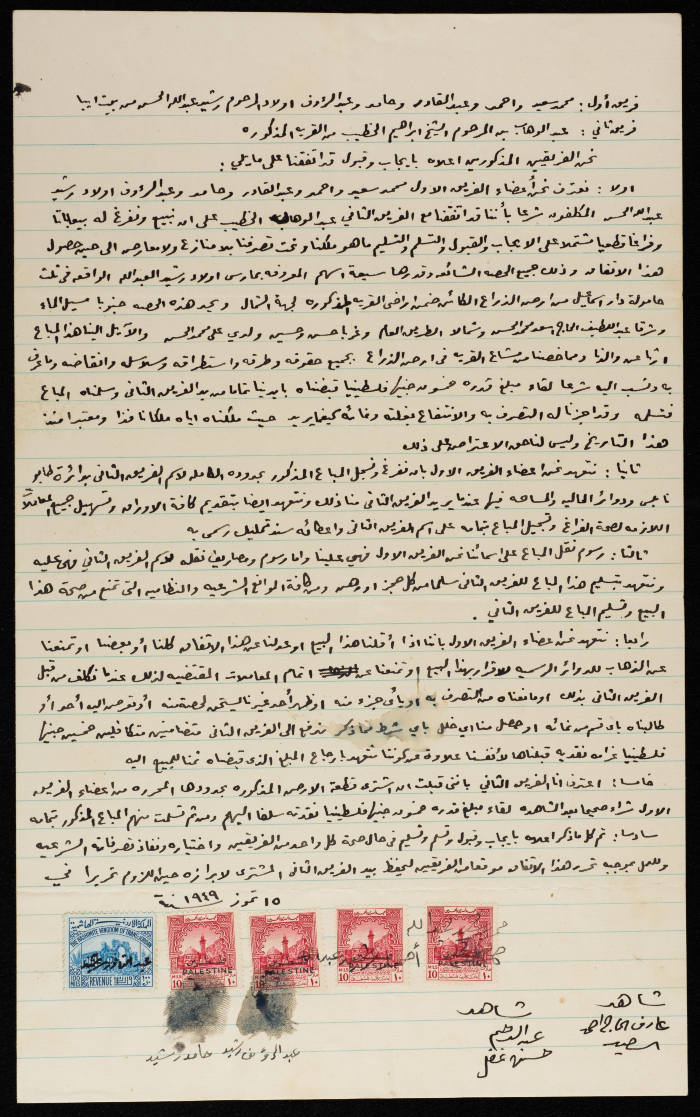 فريق أول : محمد سعيد واحمد وعبد القادر وحامد وعبد الرؤوف اولاد المرحوم رشيد عبدالله الحسن من بيت ايبا
فريق ثاني : عبد الوهاب بن المرحوم الشيخ ابراهيم الخطيب من القريه المذكوره
نحن الفريقين المذكورين اعلاه بايجاب وقبول قد اتفقنا على مايلي :
اولا : نعترف نحن أعضاء الفريق الاول محمد سعيد واحمد وعبد القادر وحامد وعبد الرؤوف اولاد رشيد
عبدالله الحسن المكلفون شرعا بأننا قد اتفقنا مع الفريق الثاني عبد الوهاب الخطيب على ان نبيع ونفرغ له بيعا باتا
وفراغا قطعيا مشتملا على الايجاب والقبول والتسلم والتسليم ما هو ملكنا وتحت تصرفنا بلا منازع ولا معارض الى حين حصول
هذا الاتفاق وذلك جميع الحصه الشائعه وقدرها سبعة اسهم المعروفه بمارس اولاد رشيد العبدالله الواقعه في ثلث
حامولة دار اسماعيل من ارض الذراع الكائن ضمن اراضي القريه المذكوره لجهة الشمال ويحد هذه الحصه جنوبا مسيل الماء
وشرقا عبد اللطيف الحاج اسعد محمد الحسن وشمالا الطريق العام وغربا حسن وحسين ولدي علي محمد الحسن والآيل الينا هذا المباع
ارثا عن والدنا ومما خصنا من مشاع القريه في ارض الذراع بجميع حقوقه وطرقه واستطراقه وسلوله وانقاضه وما عرف
به ونسب اليه شرعا لقاء مبلغ قدره خمسون جنيها فلسطينيا قبضناه بايدينا تماما من يد الفريق الثاني وسلمناه المباع
فتسلمه وقد اجزنا له التصرف به والانتفاع بغلته ونمائه كيفما يريد حيث ملكناه اياه ملكا نافذا ومعتبرا منذ
هذا التاريخ وليس لنا حق الاعتراض على ذلك
ثانيا : نتعهد نحن اعضاء الفريق الاول بان نفرغ ونسجل المباع المذكور بحدوده الكامله لاسم الفريق الثاني بدائرة طابو
نابلس ودوائر الماليه والمساحه فيها عندما يريد الفريق الثاني منا ذلك ونتعهد ايضا بتقديم كافة الاوراق وتسهيل جميع المعاملات
اللازمه لصحة الفراغ وتسجيل المباع بتمامه على اسم الفريق الثاني واعطائه سند تمليك رسمي به
ثالثا : رسوم نقل المباع على اسمائنا نحن الفريق الاول فهي علينا واما رسوم ومصاريف نقله لاسم الفريق الثاني فهي عليه
ونتعهد بتسليم هذا المباع للفريق الثاني سلما من كل حجز او رهن ومن كافة الموانع الشرعيه والنظاميه التي تمنع من صحة هذا
البيع وتسليم المباع للفريق الثاني .
رابعا : نتعهد نحن اعضاء الفريق الاول باننا اذا أقلنا هذا البيع او عدلنا عن هذا الاتفاق كلنا أو بعضنا او تمنعنا
عن الذهاب للدوائر الرسميه للاقرار بهذا البيع او تمنعنا عن اتمام المعاملات المقتضيه لذلك عندما نكلف من قبل
الفريق الثاني بذلك او مانعناه من التصرف به او بأي جزء منه او ظهر أحد غيرنا يستحق لحصة منه أو تعرض اليه أحد أو
طالبناه باي قسم من نمائه او حصل منا اي خلل باي شرط مما ذكر ندفع الى الفريق الثاني متضامنين متكافلين خمسين جنيها
فلسطينيا غرامه نقديه قبلناها لأنفسنا علاوة عن كوننا نتعهد بارجاع المبلغ الذي قبضناه ثمنا للبيع اليه
خامسا : اعترف انا الفريق الثاني باننى قبلت ان اشترى قطعة الارض المذكوره بحدودها المحرره من اعضاء الفريق
الاول شراء صحيحا بعد الشاهده لقاء مبلغ قدره خمسون جنيها فلسطينيا نقدته سلفا اليهم ومن ثم تسلمت منهم المباع المذكور بتمامه
سادسا : تم كل ما ذكر اعلاه بايجاب وقبول وتسلم وتسليم في حال صحة كل واحد من الفريقين واختياره ونفاذ تصرفاته الشرعيه
وللعمل بموجبه تحرر هذا الاتفاق موقعا من الفريقين ليحفظ بيد الفريق الثاني المشترى لابرازه حين اللزوم تحريرا في
١٥ تموز سنة ١٩٤٩
THE HASHEMITE KINGDOM OF TRANSJORDAN
REVENUE
PALESTINE
MILS 10 ١٠
PALESTINE
MILS 10 ١٠
PALESTINE
MILS 10 ١٠
PALESTINE
MILS 10 ١٠
عبد الرؤوف رشيد
حامد رشيد
شاهد
عارف الحاج احمد
السعيد
شاهد
عبد الرحيم
حسن